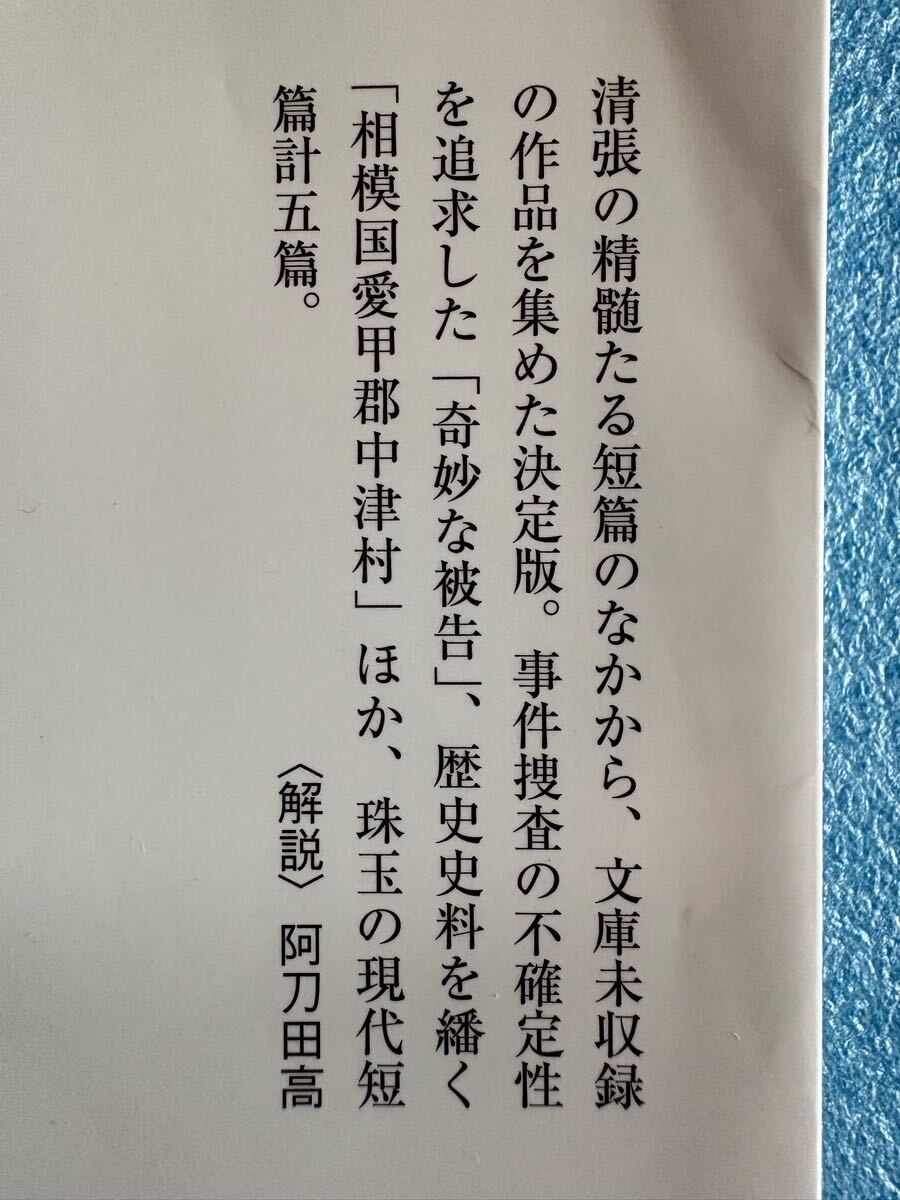 清張の精髄たる短篇のなかから、文庫未収録
の作品を集めた決定版。事件捜査の不確定性
を追求した「奇妙な被告」、歴史史料を繙く
「相模国愛甲郡中津村」ほか、珠玉の現代短
篇計五篇。
〈解説〉阿刀田高